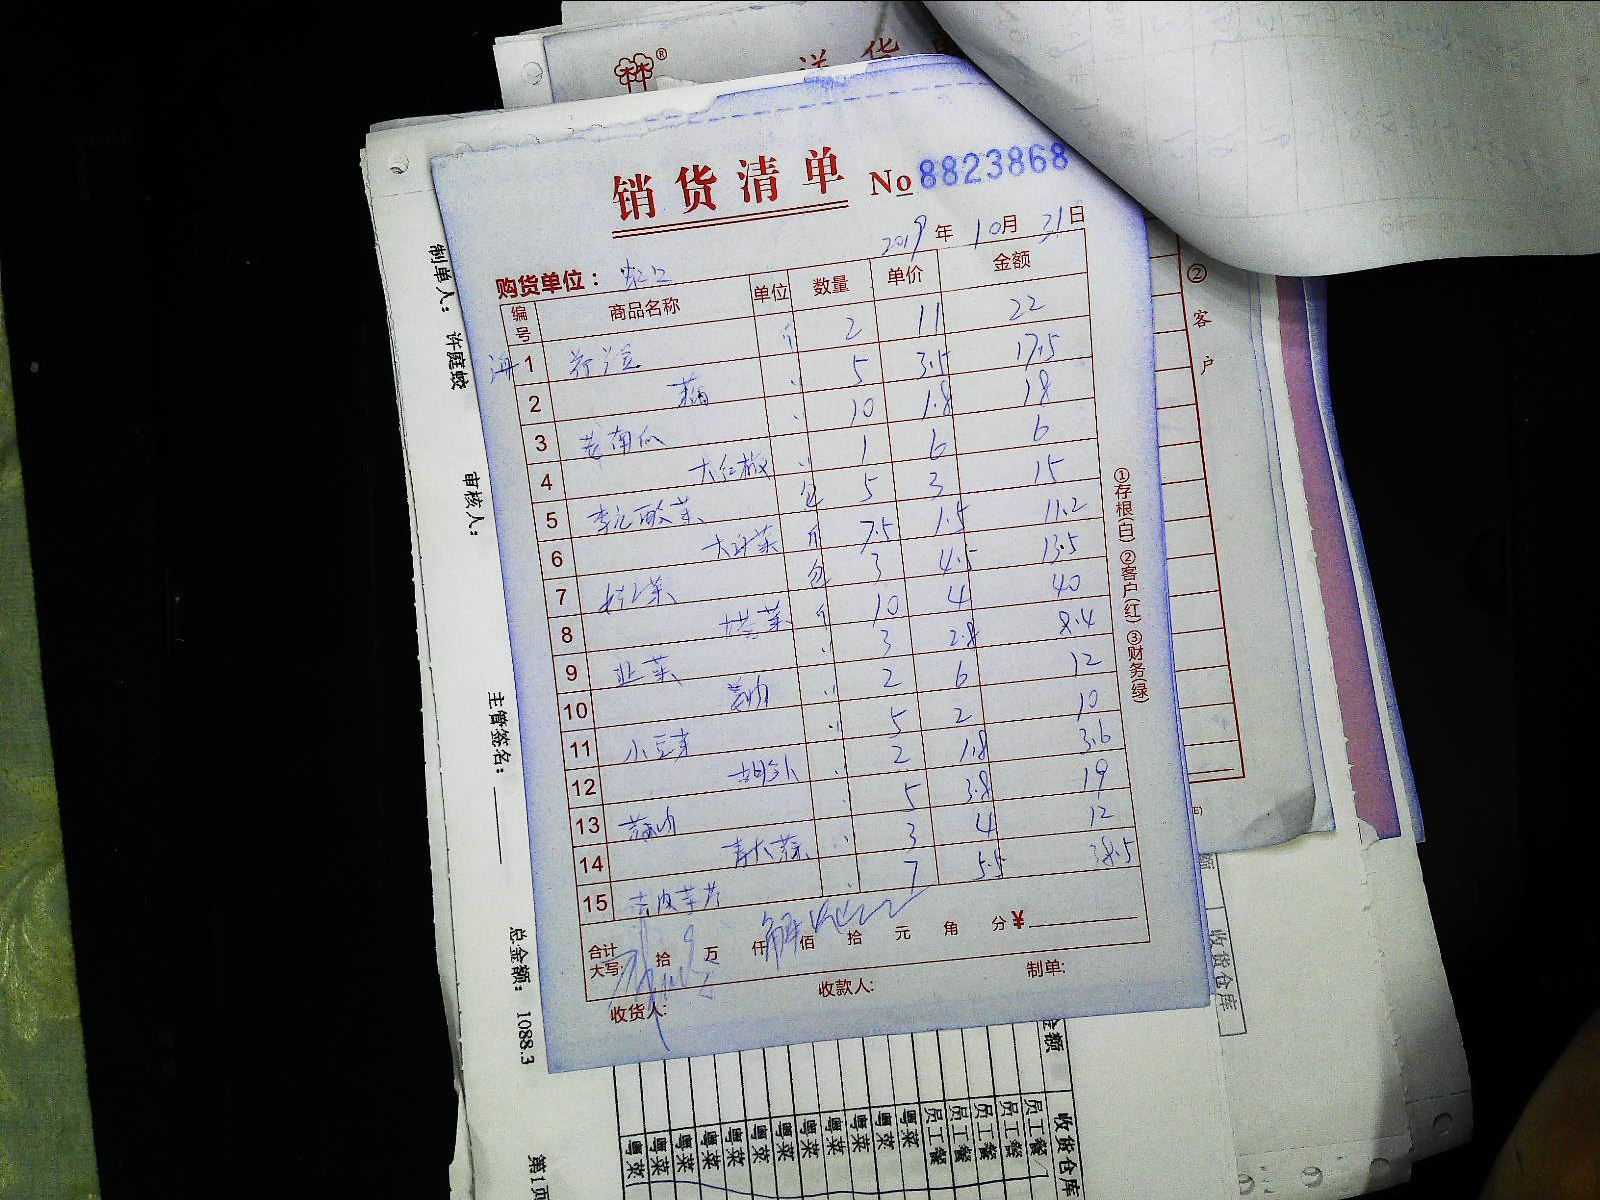 林®
送货
销货清单 No 8823868
2019年 10月 31日
购货单位：虹口
编号 商品名称 单位 数量 单价 金额
1 荷兰豆 斤 2 11 22
2 〃 5 3.5 17.5
3 老南瓜 〃 10 1.8 18
4 大红椒 〃 1 6 6
5 李记酸菜 包 5 3 15
6 大白菜 斤 7.5 1.5 11.2
7 包 3 4.5 13.5
8 塔菜 斤 10 4 40
9 韭菜 〃 3 2.8 8.4
10 〃 2 6 12
11 小豆芽 〃 5 2 10
12 〃 2 1.8 3.6
13 〃 5 3.8 19
14 青大蒜 〃 3 4 12
15 去皮芋艿 〃 7 5.5 38.5
合计
大写： 拾 万 仟 佰 拾 元 角 分 ¥
收货人： 收款人： 制单：
①存根(白) ②客户(红) ③财务(绿)
②客户
制单人： 许庭蛟
审核人：
主管签名：
总金额： 1088.3
第1页
收货仓库
金额 收货仓库
员工餐
员工餐
员工餐
员工餐
员工餐
粤菜
粤菜
粤菜
粤菜
粤菜
粤菜
粤菜
粤菜
粤菜
粤菜
粤菜
粤菜